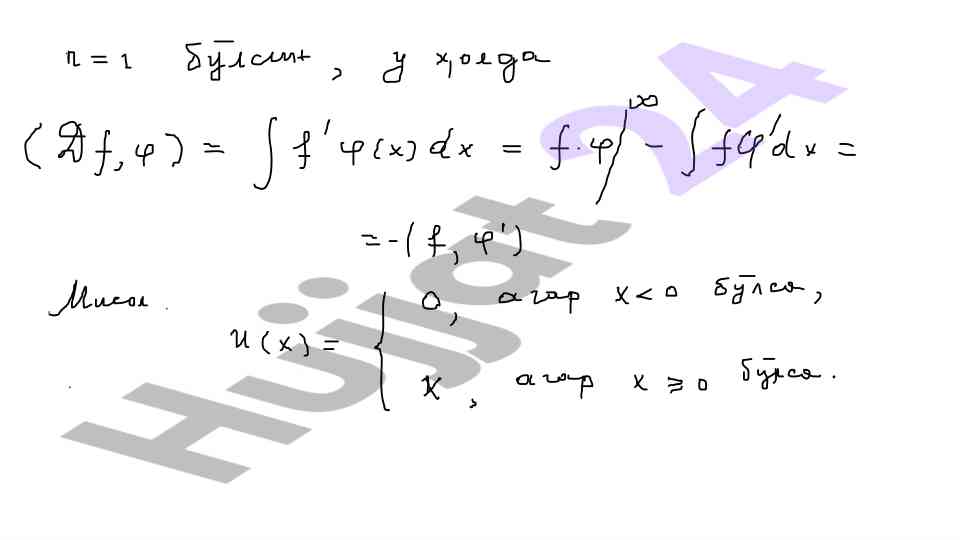 n = 1 бўлсин, у ҳолда
(𝒟f, φ) = ∫ f' φ(x) dx = f·φ |^∞ − ∫ fφ' dx =
= -(f, φ')
Мисол.
u(x) = { 0, агар x < 0 бўлса,
x, агар x ⩾ 0 бўлса.
Hujjat 24